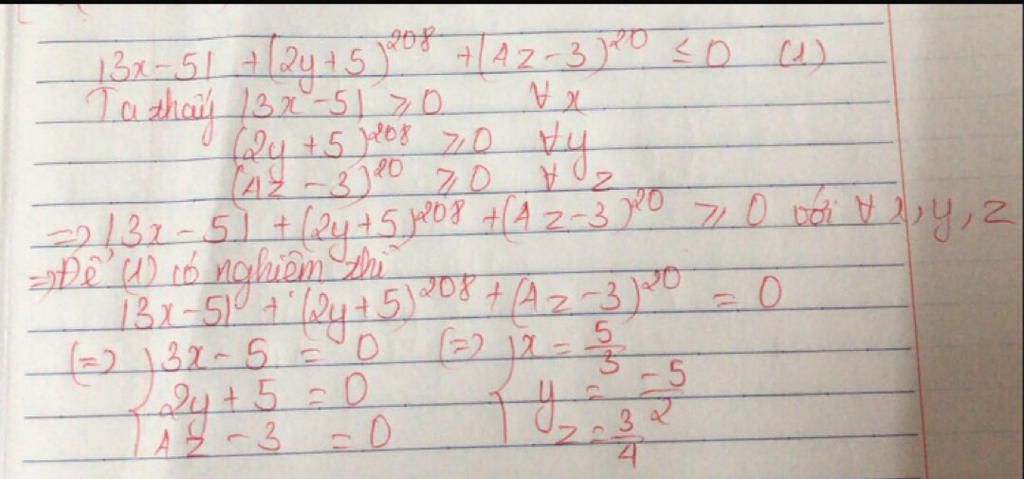 |3x-5| + (2y+5)²⁰⁸ + (4z-3)²⁰ ≤ 0 (1)
Ta thấy |3x-5| ≥ 0 ∀x
(2y+5)²⁰⁸ ≥ 0 ∀y
(4z-3)²⁰ ≥ 0 ∀z
=> |3x-5| + (2y+5)²⁰⁸ + (4z-3)²⁰ ≥ 0 với ∀x,y,z
=> Để (1) có nghiệm thì
|3x-5| + (2y+5)²⁰⁸ + (4z-3)²⁰ = 0
(=>) { 3x-5 = 0 (=>) { x = 5/3
2y+5 = 0 y = -5/2
4z-3 = 0 z = 3/4